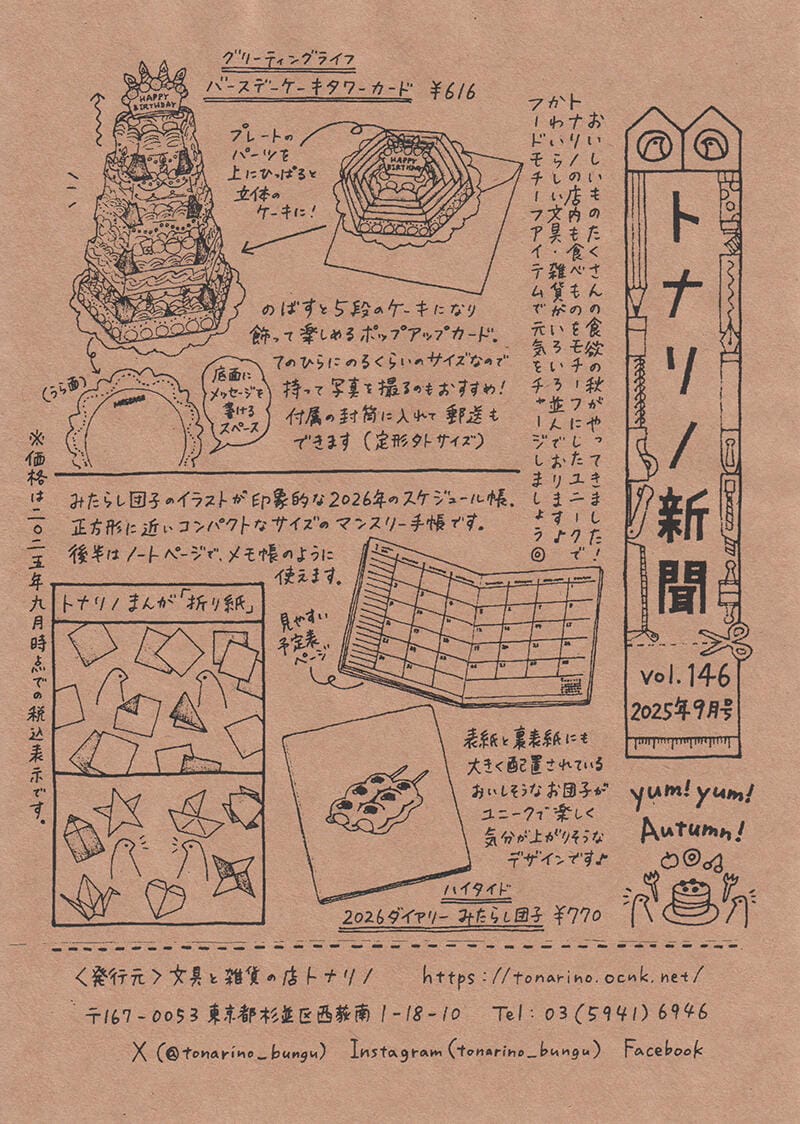 トナリノ新聞
vol.146
2025年9月号
おいしいものたくさんの食欲の秋がやってきました！
トナリノの店内も食べものをモチーフにしたユニークで
かわいらしい文具・雑貨がいろいろ並んでおります♪
フードモチーフアイテムで元気をチャージしましょう◎
グリーティングライフ
バースデーケーキタワーカード ¥616
HAPPY
BIRTHDAY
プレートの
パーツを
上にひっぱると
立体の
ケーキに！
HAPPY
BIRTHDAY
のばすと5段のケーキになり
飾って楽しめるポップアップカード。
てのひらにのるくらいのサイズなので
持って写真を撮るのもおすすめ！
付属の封筒に入れて郵送も
できます（定形外サイズ）
（うら面）
MESSAGE
底面に
メッセージを
書ける
スペース
みたらし団子のイラストが印象的な2026年のスケジュール帳。
正方形に近いコンパクトなサイズのマンスリー手帳です。
後半はノートページで、メモ帳のように
使えます。
見やすい
予定表
ページ
トナリノまんが「折り紙」
表紙と裏表紙にも
大きく配置されている
おいしそうなお団子が
ユニークで楽しく
気分が上がりそうな
デザインです♪
ハイタイド
2026ダイアリー みたらし団子 ¥770
yum! yum!
Autumn!
※価格は二〇二五年九月時点での税込表示です。
〈発行元〉文具と雑貨の店トナリノ https://tonarino.ocnk.net/
〒167-0053 東京都杉並区西荻南1-18-10 Tel: 03(5941)6946
X (@tonarino_bungu) Instagram (tonarino_bungu) Facebook